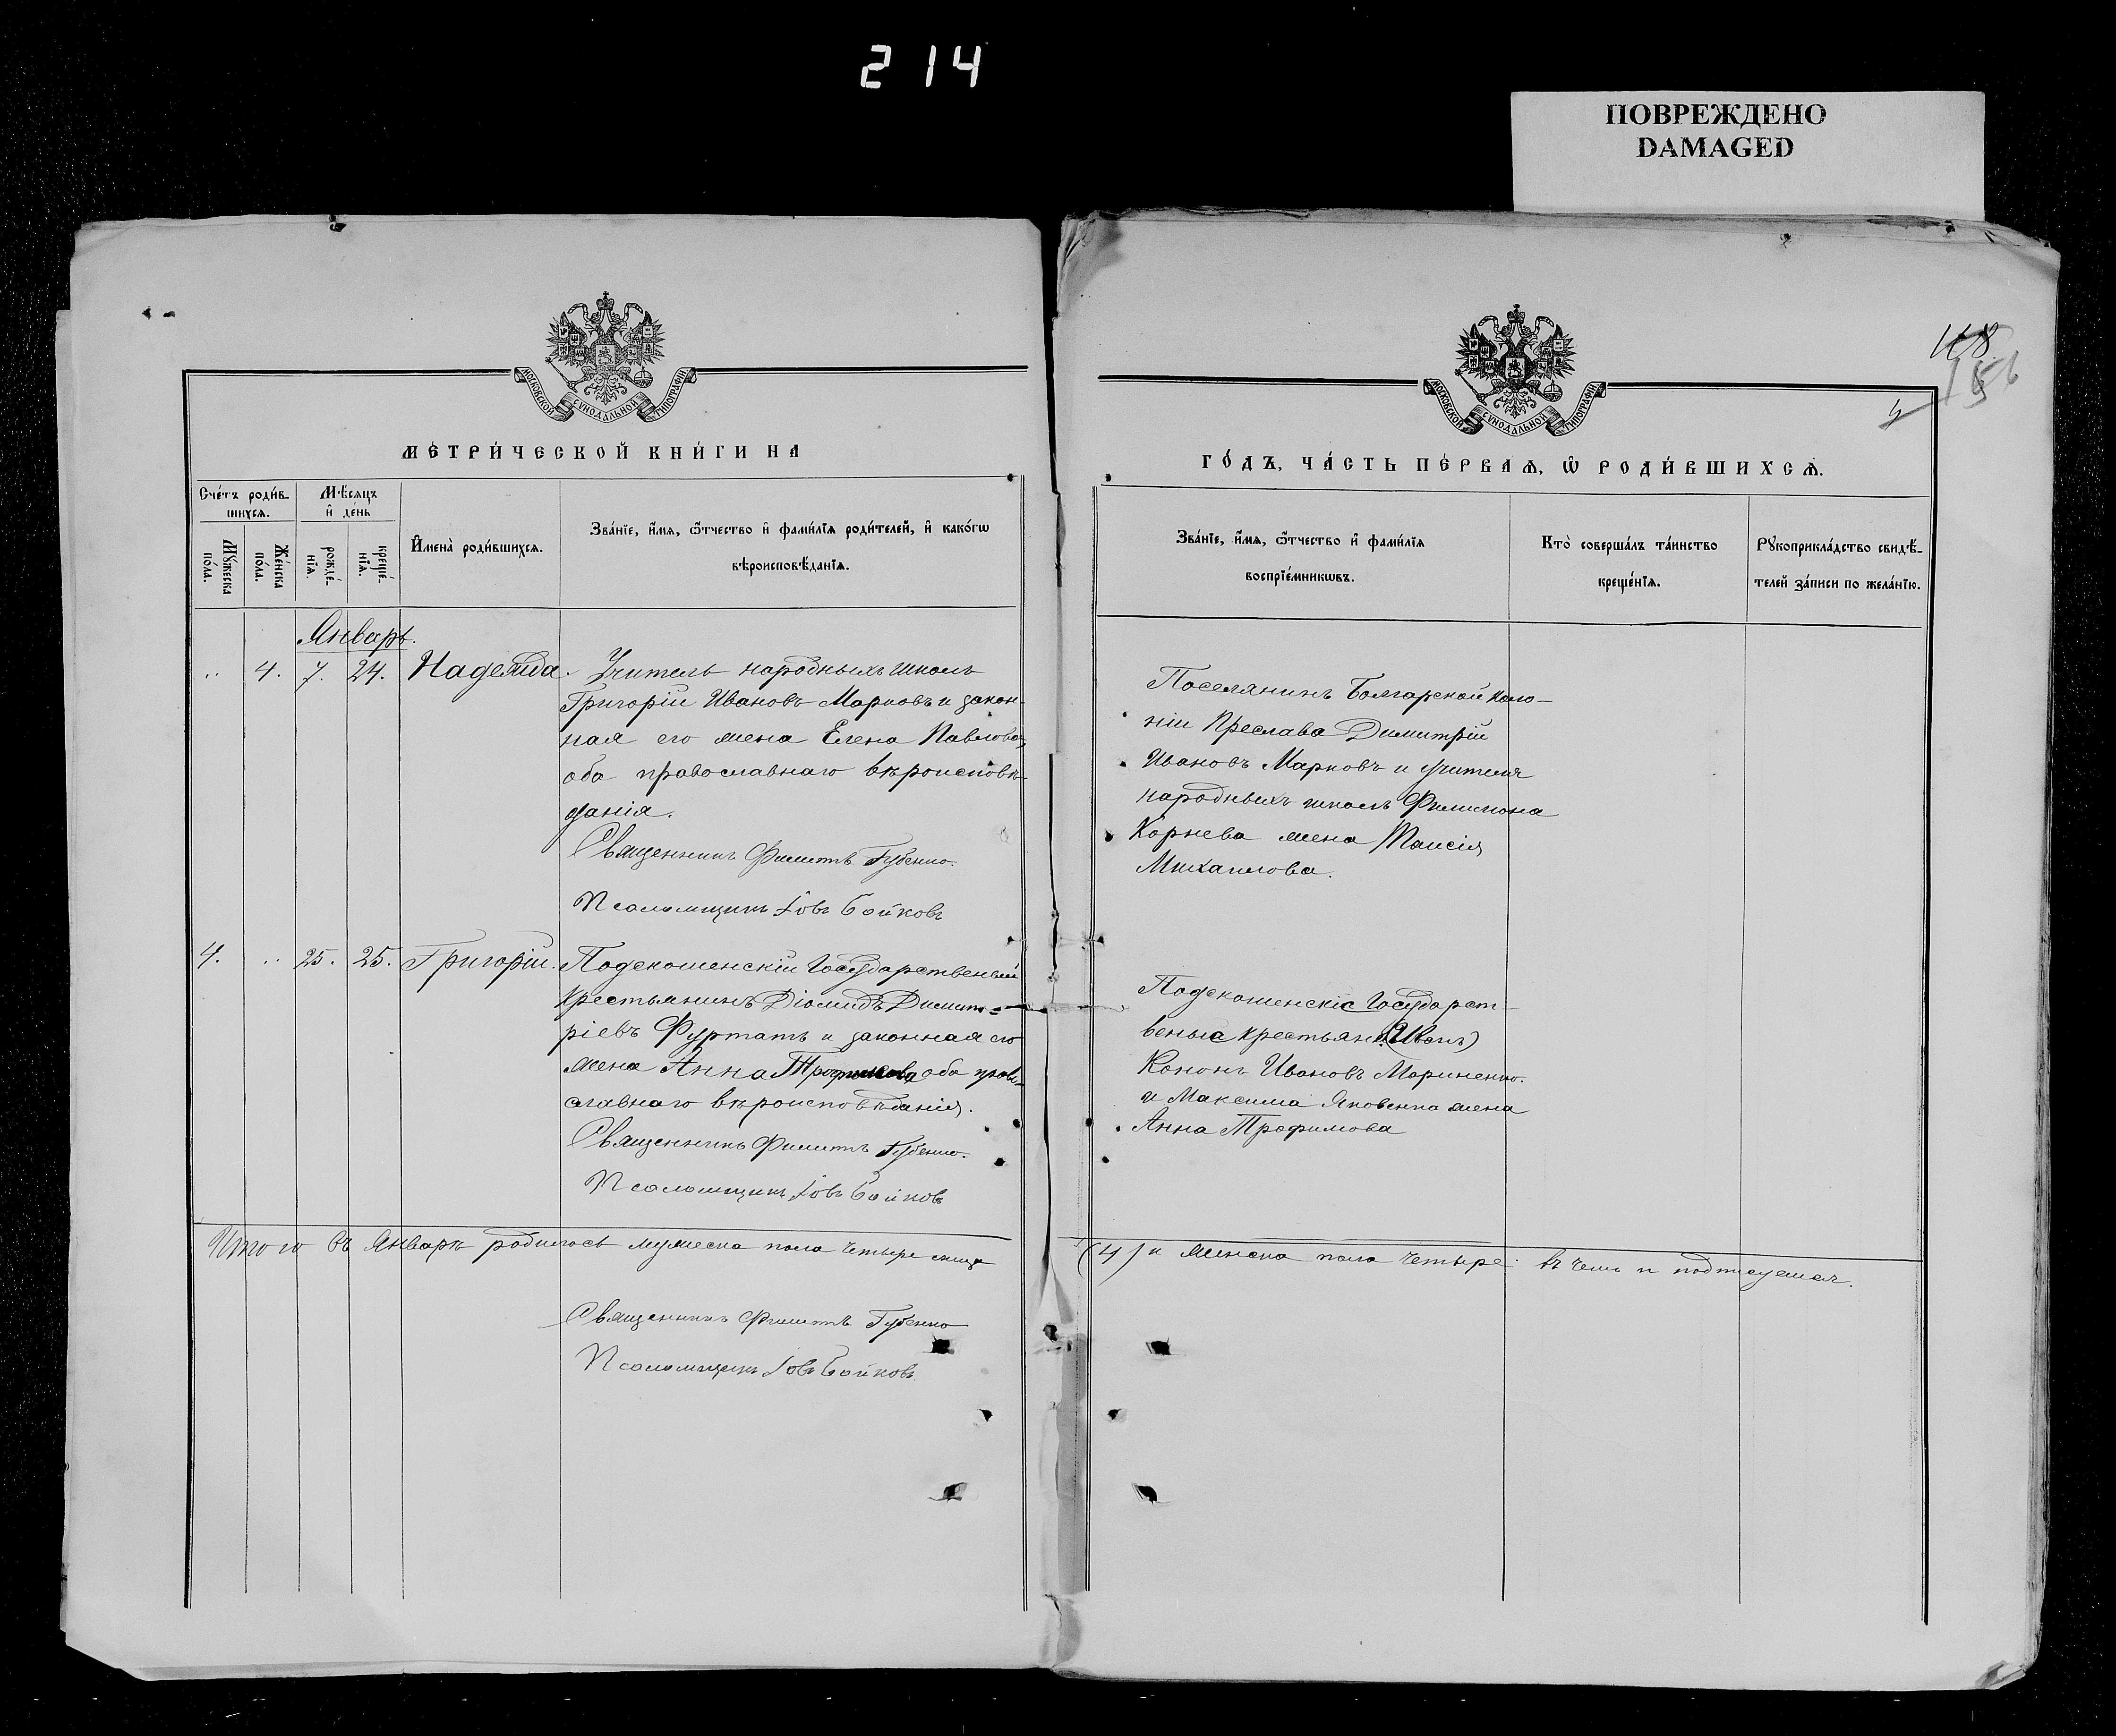 214
ПОВРЕЖДЕНО
DAMAGED
МОСКОВСКОЙ СѴНОДАЛЬНОЙ ТИПОГРАФІИ
МЕ́ТРИ́ЧЕСКОЙ КНИ́ГИ НА
Сче́тъ роди́в-
шихсѧ.
Мѣ́сяцъ
и҆ де́нь
Мꙋ́жеска
по́ла.
Же́нска
по́ла.
рожде́-
нїѧ.
креще́-
нїѧ.
И҆мена̀ роди́вшихсѧ.
Зва́нїе, и҆́мѧ, ѿтчество и҆ фами́лїѧ роди́телей, и҆ како́гѡ
вѣроисповѣ́данїѧ.
Январь.
.. 4. 7. 24. Надежда. Учитель народныхъ школъ
Григорій Ивановъ Марковъ и закон-
ная его жена Елена Павлова,
оба православнаго вѣроисповѣ-
данія.
Священникъ Филиппъ Губенко.
Псаломщикъ Іовъ Бойковъ
4. .. 25. 25. Григорій. Государственный
Крестьянинъ Діомидъ Димит=
ріевъ и законная его
жена Анна Трофимова, оба право-
славнаго вѣроисповѣданія.
Священникъ Филиппъ Губенко.
Псаломщикъ Іовъ Бойковъ
Итого въ Январѣ родилось мужеска пола четыре лица
Священникъ Филиппъ Губенко
Псаломщикъ Іовъ Бойковъ
4
МОСКОВСКОЙ СѴНОДАЛЬНОЙ ТИПОГРАФІИ
ГО́ДЪ, ЧА́СТЬ ПЕ́РВАѦ, Ѡ҆ РОДИ́ВШИХСѦ.
Зва́нїе, и҆́мѧ, ѿтчество и҆ фами́лїѧ
воспрїе́мникѡвъ.
Кто̀ соверша́лъ та́инство
креще́нїѧ.
Рꙋкоприкла́дство свидѣ́-
телей за́писи по жела́нїю.
Поселянинъ Болгарской коло-
ніи Преслава Димитрій
Ивановъ Марковъ и учителя
народныхъ школъ Филимона
Корнева жена Таисія
Михаилова.
Государст-
веные крестьяне (Иванъ)
Кононъ Ивановъ Мариненко.
и Максима Яковенка жена
Анна Трофимова
(4) и женска пола четыре въ чемъ и подписуемся.